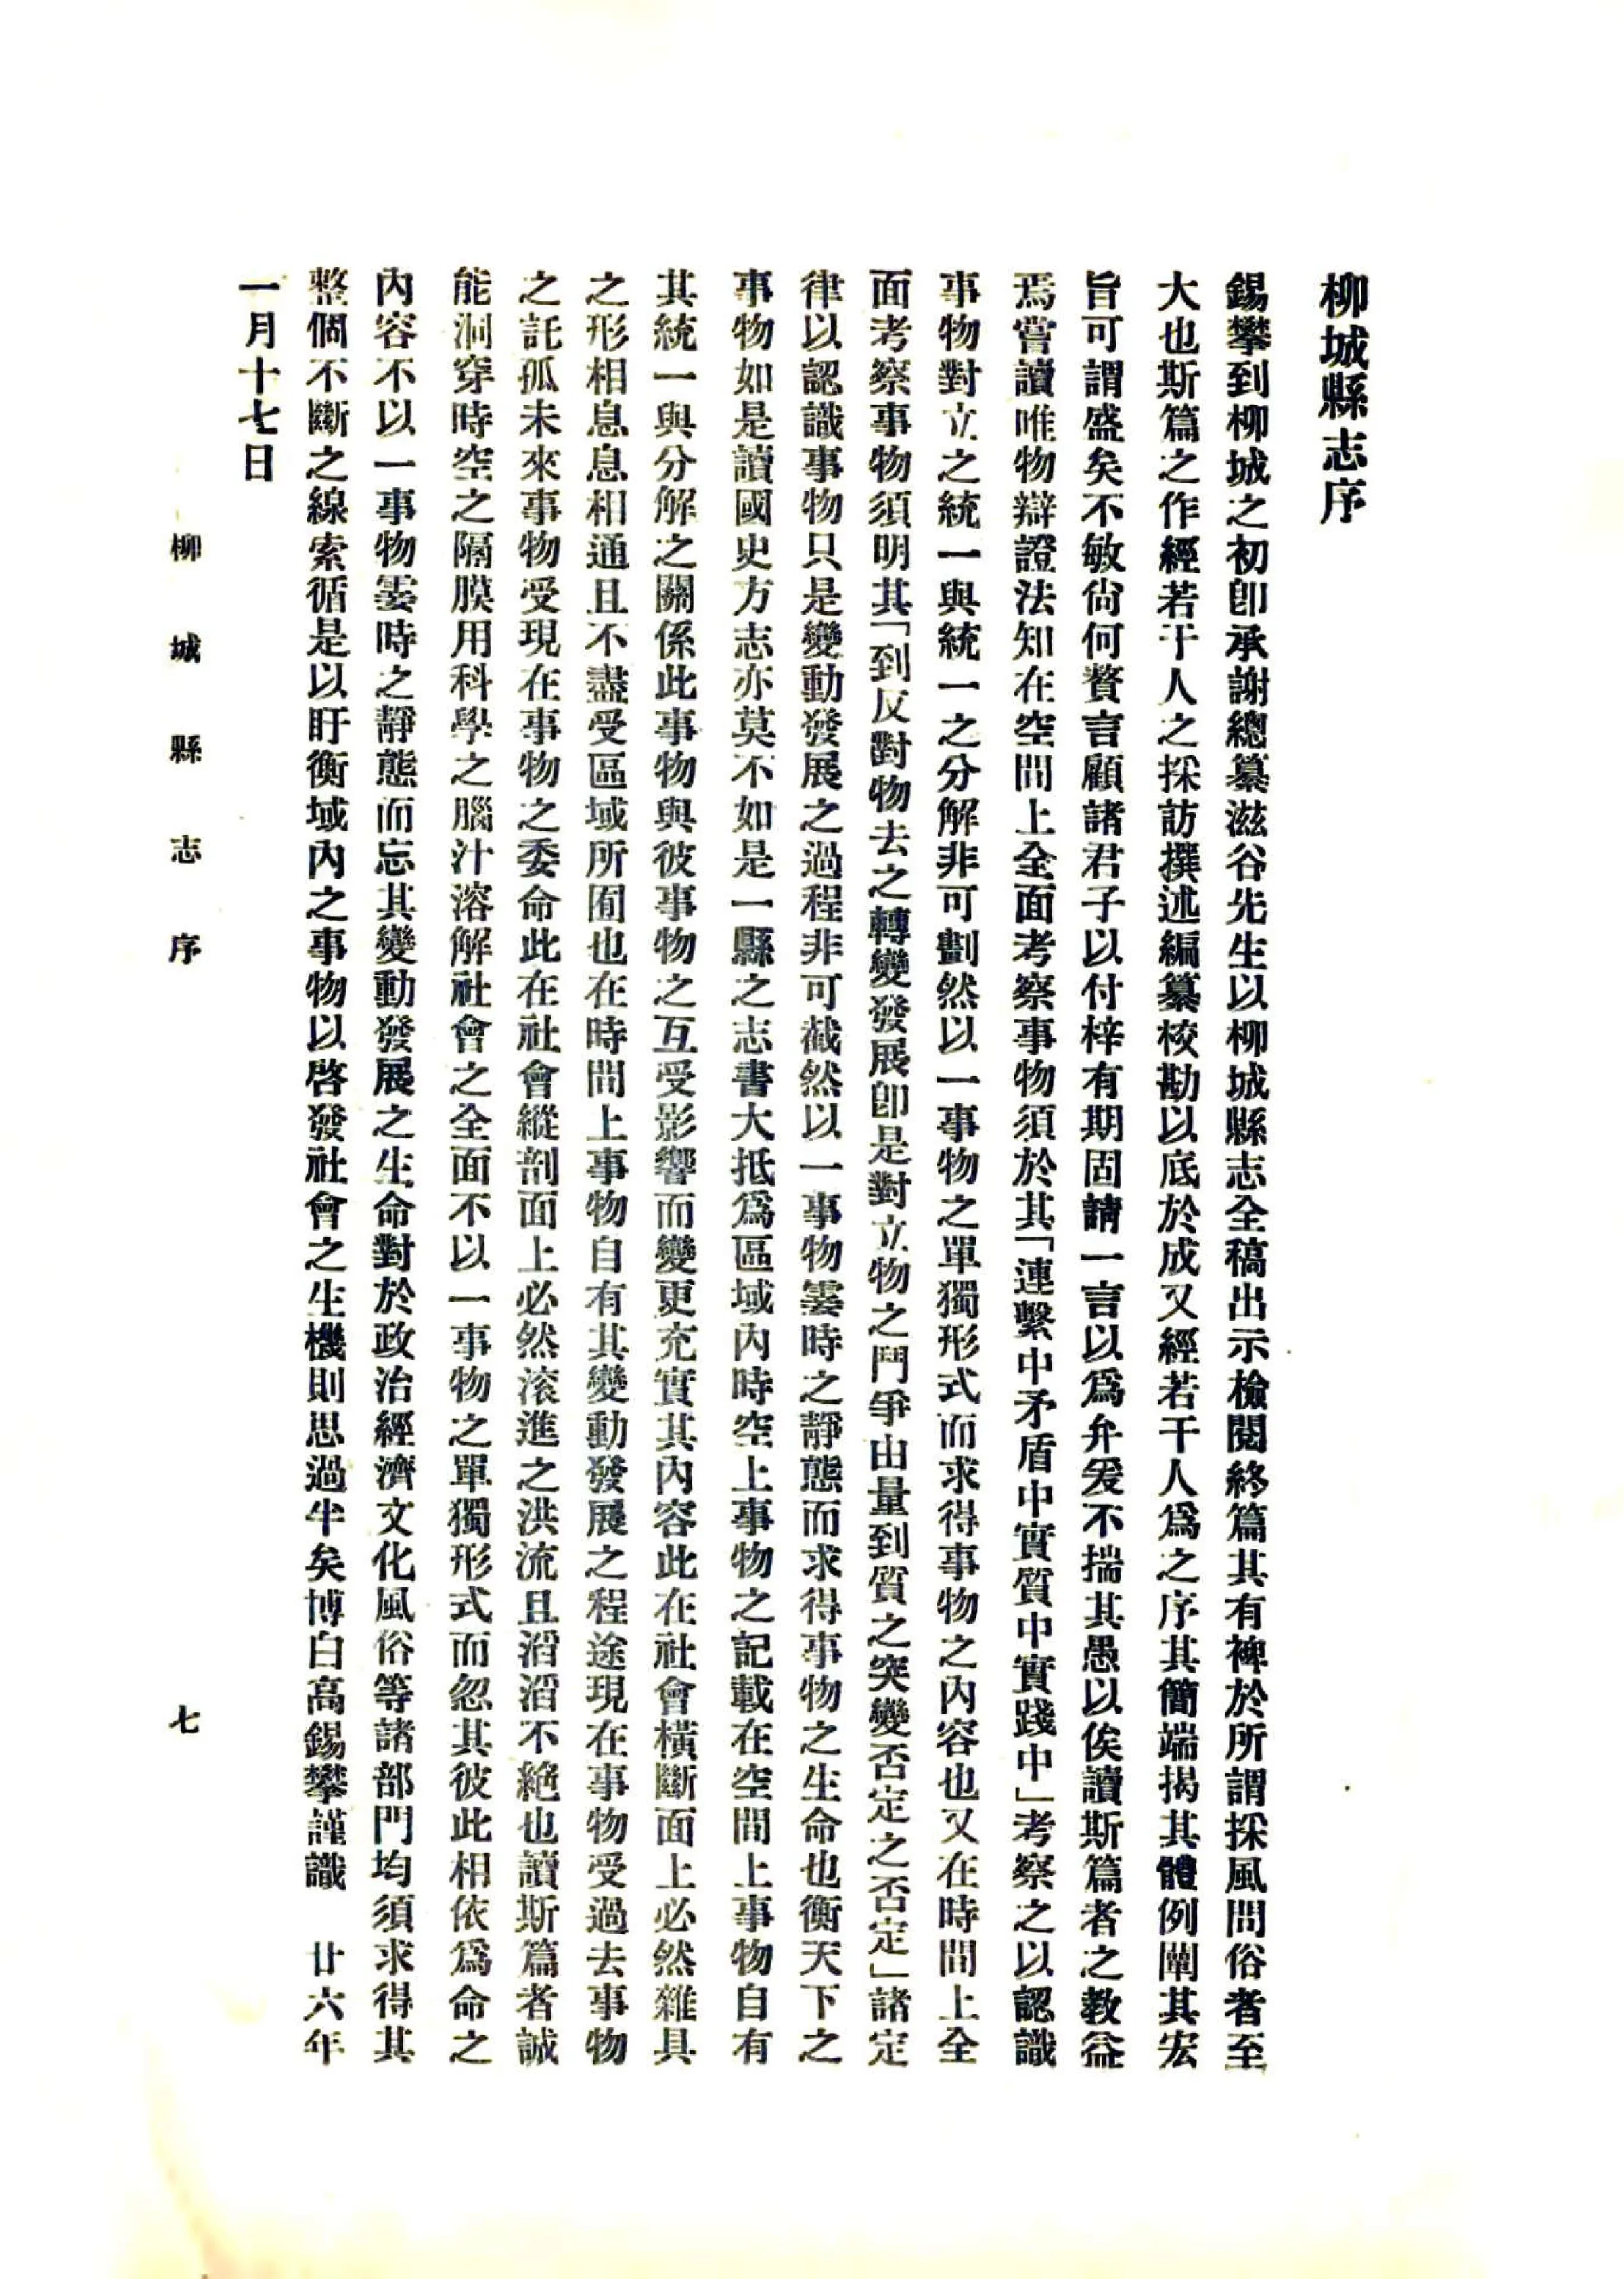 柳城縣志序
錫攀到柳城之初卽承謝總纂滋谷先生以柳城縣志全稿出示檢閱終篇其有裨於所謂採風問俗者至
大也斯篇之作經若干人之採訪撰述編纂校勘以底於成又經若干人爲之序其簡端揭其體例闡其宏
旨可謂盛矣不敏尙何贅言顧諸君子以付梓有期固請一言以爲弁爰不揣其愚以俟讀斯篇者之教益
焉嘗讀唯物辯證法知在空間上全面考察事物須於其「連繫中矛盾中實質中實踐中」考察之以認識
事物對立之統一與統一之分解非可劃然以一事物之單獨形式而求得事物之內容也又在時間上全
面考察事物須明其「到反對物去之轉變發展卽是對立物之鬥爭由量到質之突變否定之否定」諸定
律以認識事物只是變動發展之過程非可截然以一事物霎時之靜態而求得事物之生命也衡天下之
事物如是讀國史方志亦莫不如是一縣之志書大抵爲區域內時空上事物之記載在空間上事物自有
其統一與分解之關係此事物與彼事物之互受影響而變更充實其內容此在社會橫斷面上必然雜具
之形相息息相通且不盡受區域所囿也在時間上事物自有其變動發展之程途現在事物受過去事物
之託孤未來事物受現在事物之委命此在社會縱剖面上必然滾進之洪流且滔滔不絕也讀斯篇者誠
能洞穿時空之隔膜用科學之腦汁溶解社會之全面不以一事物之單獨形式而忽其彼此相依爲命之
內容不以一事物霎時之靜態而忘其變動發展之生命對於政治經濟文化風俗等諸部門均須求得其
整個不斷之線索循是以盱衡域內之事物以啓發社會之生機則思過半矣博白高錫攀謹識　廿六年
一月十七日
柳城縣志序
七